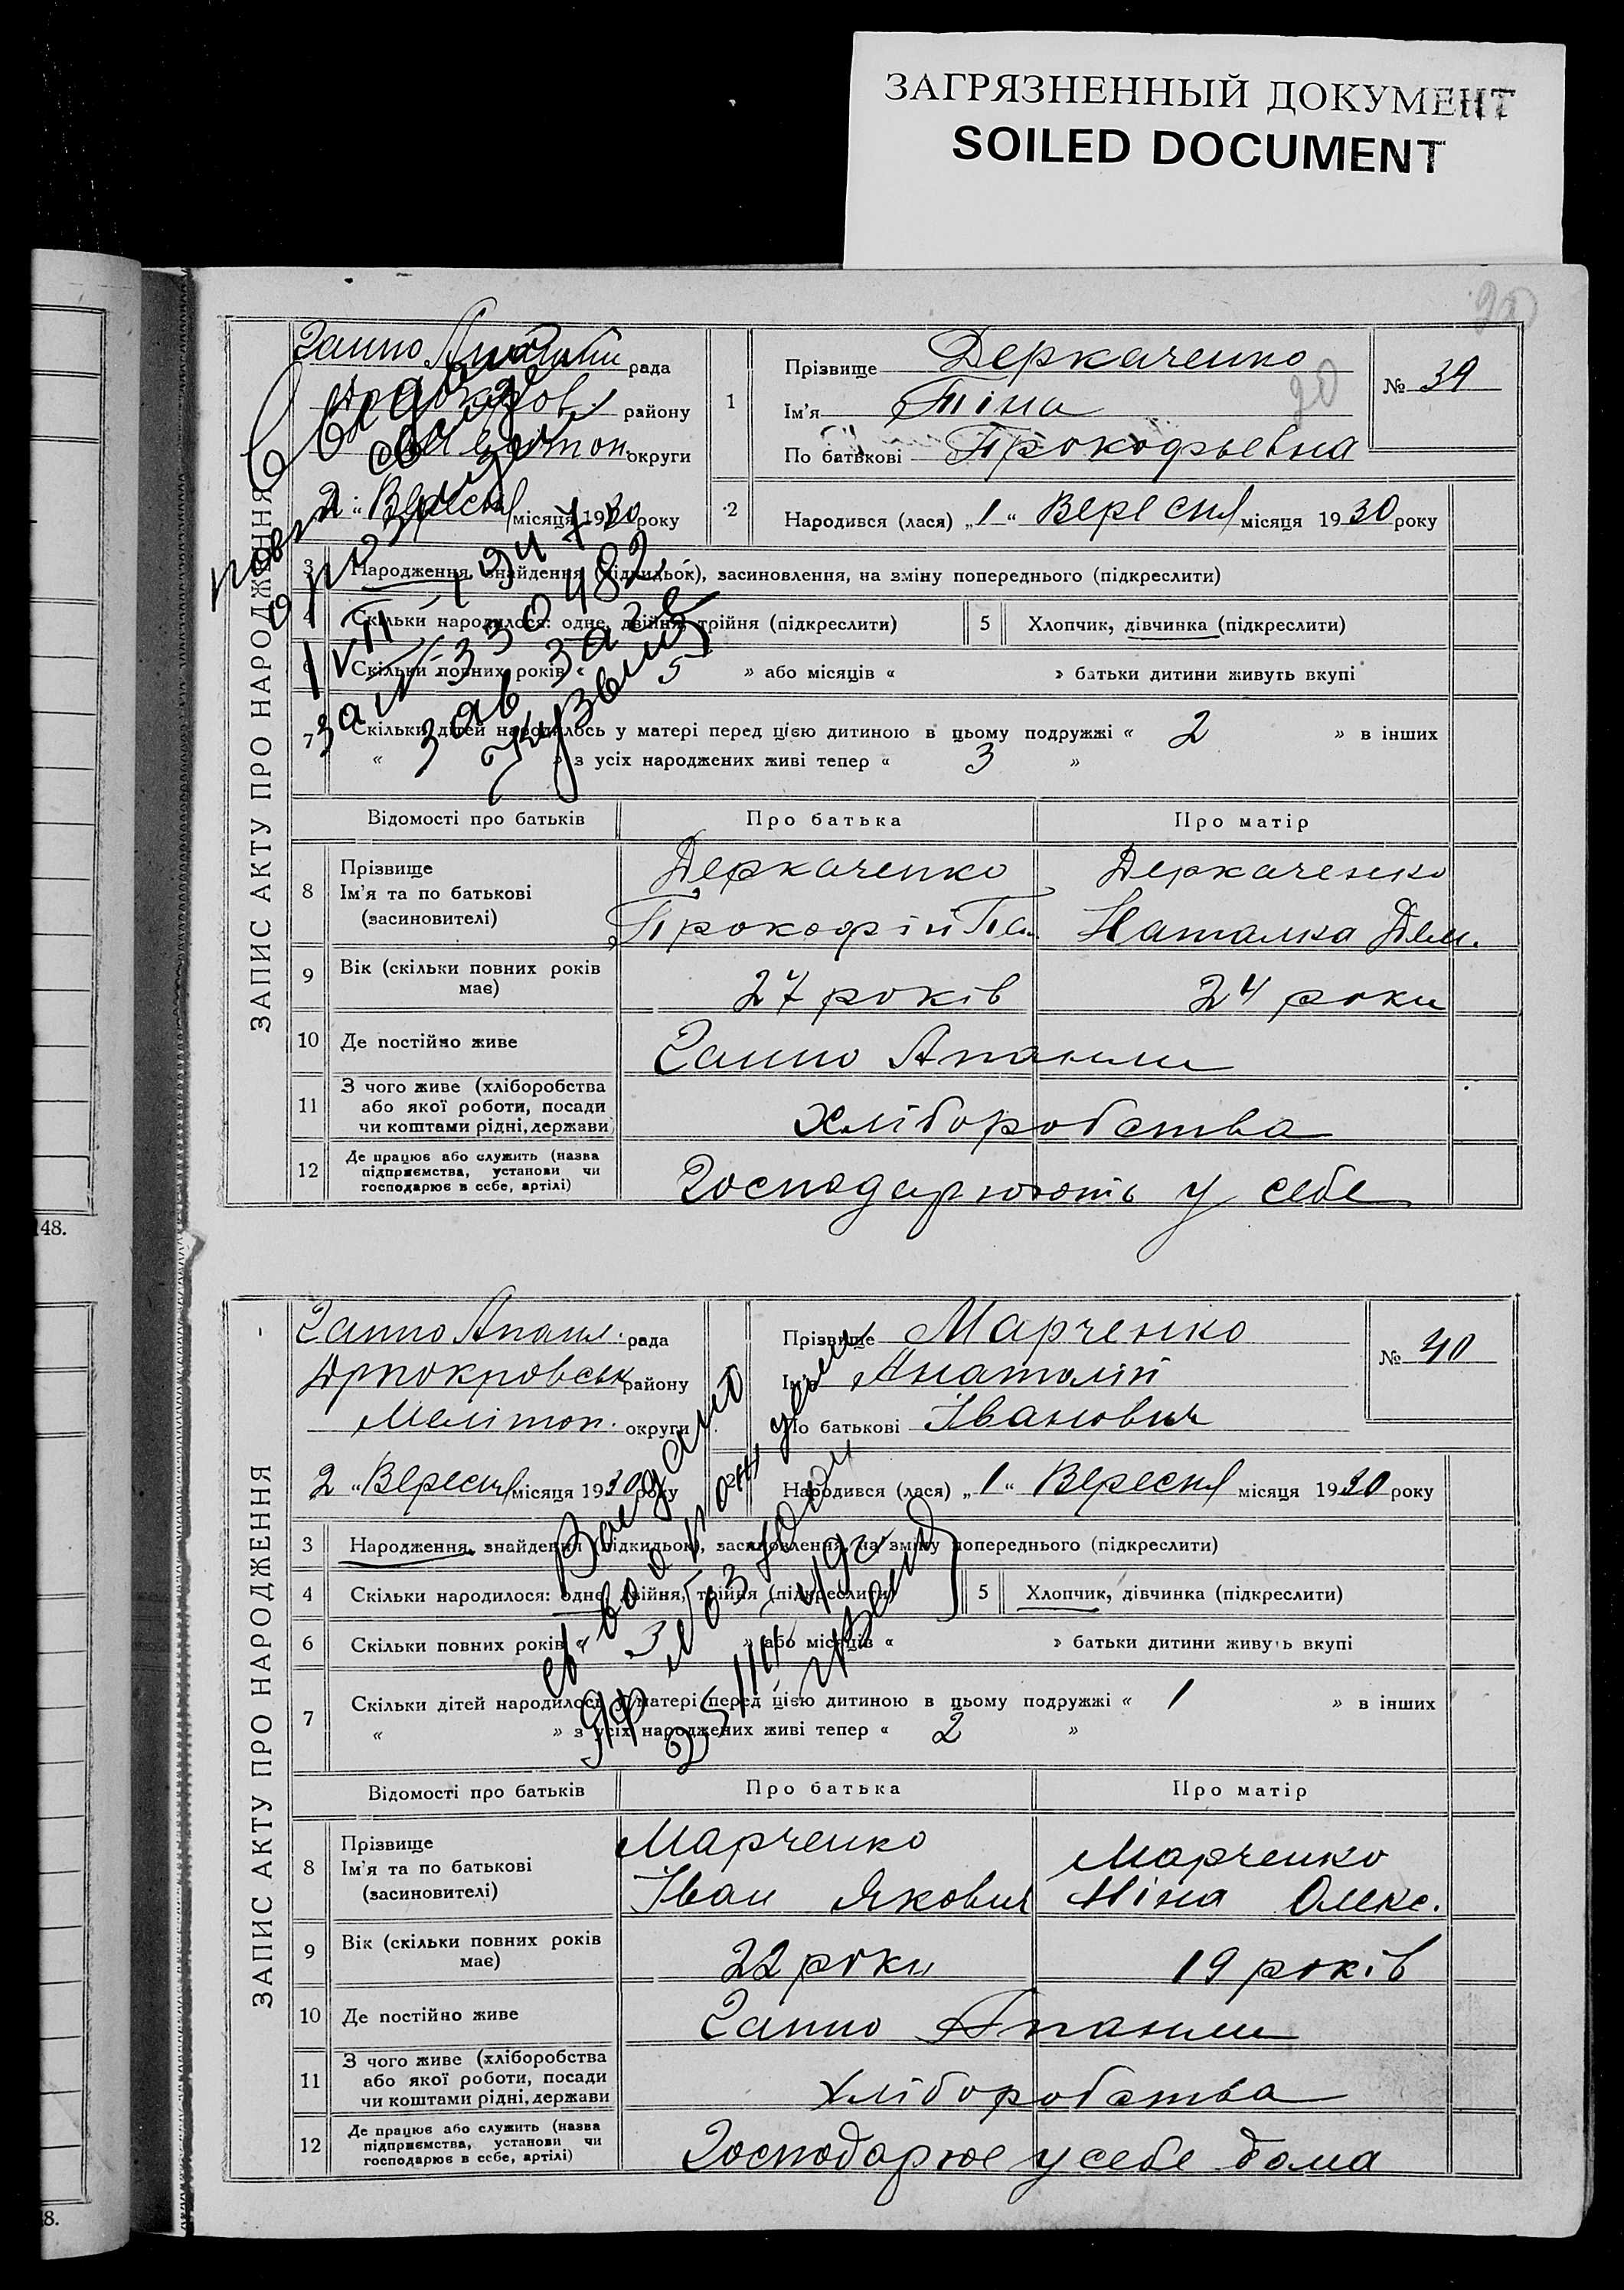 ЗАГРЯЗНЕННЫЙ ДОКУМЕНТ
SOILED DOCUMENT
ЗАПИС АКТУ ПРО НАРОДЖЕННЯ
Ганно рада
району
округи
2 " Вересня місяця 1930 року
1
Прізвище Деркаченко
Ім'я
По батькові Прокофьевна
№ 39
20
2
Народився (лася) „1" Вересня місяця 1930 року
3 Народження, знайдення (підкидьок), засиновлення, на зміну попереднього (підкреслити)
4 Скільки народилося: одне, двійня, трійня (підкреслити)
5 Хлопчик, дівчинка (підкреслити)
6 Скільки повних років « 5 » або місяців « » батьки дитини живуть вкупі
7 Скільки дітей народилось у матері перед цією дитиною в цьому подружжі « 2 » в інших
« » з усіх народжених живі тепер « 3 »
Відомості про батьків
Про батька
Про матір
8 Прізвище
Ім'я та по батькові
(засиновителі)
Деркаченко
Прокофій Па
Деркаченко
Наталка Дем.
9 Вік (скільки повних років має)
27 років
24 роки
10 Де постійно живе
Ганно Апанли
11 З чого живе (хліборобства
або якої роботи, посади
чи коштами рідні, держави)
Хліборобства
12 Де працює або служить (назва
підприємства, установи чи
господарює в себе, артілі)
Господарюють у себе
148.
ЗАПИС АКТУ ПРО НАРОДЖЕННЯ
Ганно Апанл. рада
Дрпокровськ району
Мелітоп. округи
2 " Вересня місяця 1930 року
Прізвище Марченко
Ім'я Анатолій
По батькові Іванович
№ 40
Народився (лася) „1" Вересня місяця 1930 року
3 Народження, знайдення (підкидьок), засиновлення, на зміну попереднього (підкреслити)
4 Скільки народилося: одне, двійня, трійня (підкреслити)
5 Хлопчик, дівчинка (підкреслити)
6 Скільки повних років « 3 » або місяців « » батьки дитини живуть вкупі
7 Скільки дітей народилось у матері перед цією дитиною в цьому подружжі « 1 » в інших
« » з усіх народжених живі тепер « 2 »
Відомості про батьків
Про батька
Про матір
8 Прізвище
Ім'я та по батькові
(засиновителі)
Марченко
Іван Якович
Марченко
Ніна Олекс.
9 Вік (скільки повних років має)
22 роки
19 років
10 Де постійно живе
Ганно Апанли
11 З чого живе (хліборобства
або якої роботи, посади
чи коштами рідні, держави
Хліборобства
12 Де працює або служить (назва
підприємства, установи чи
господарює в себе, артілі)
Господарює у себе дома
8.